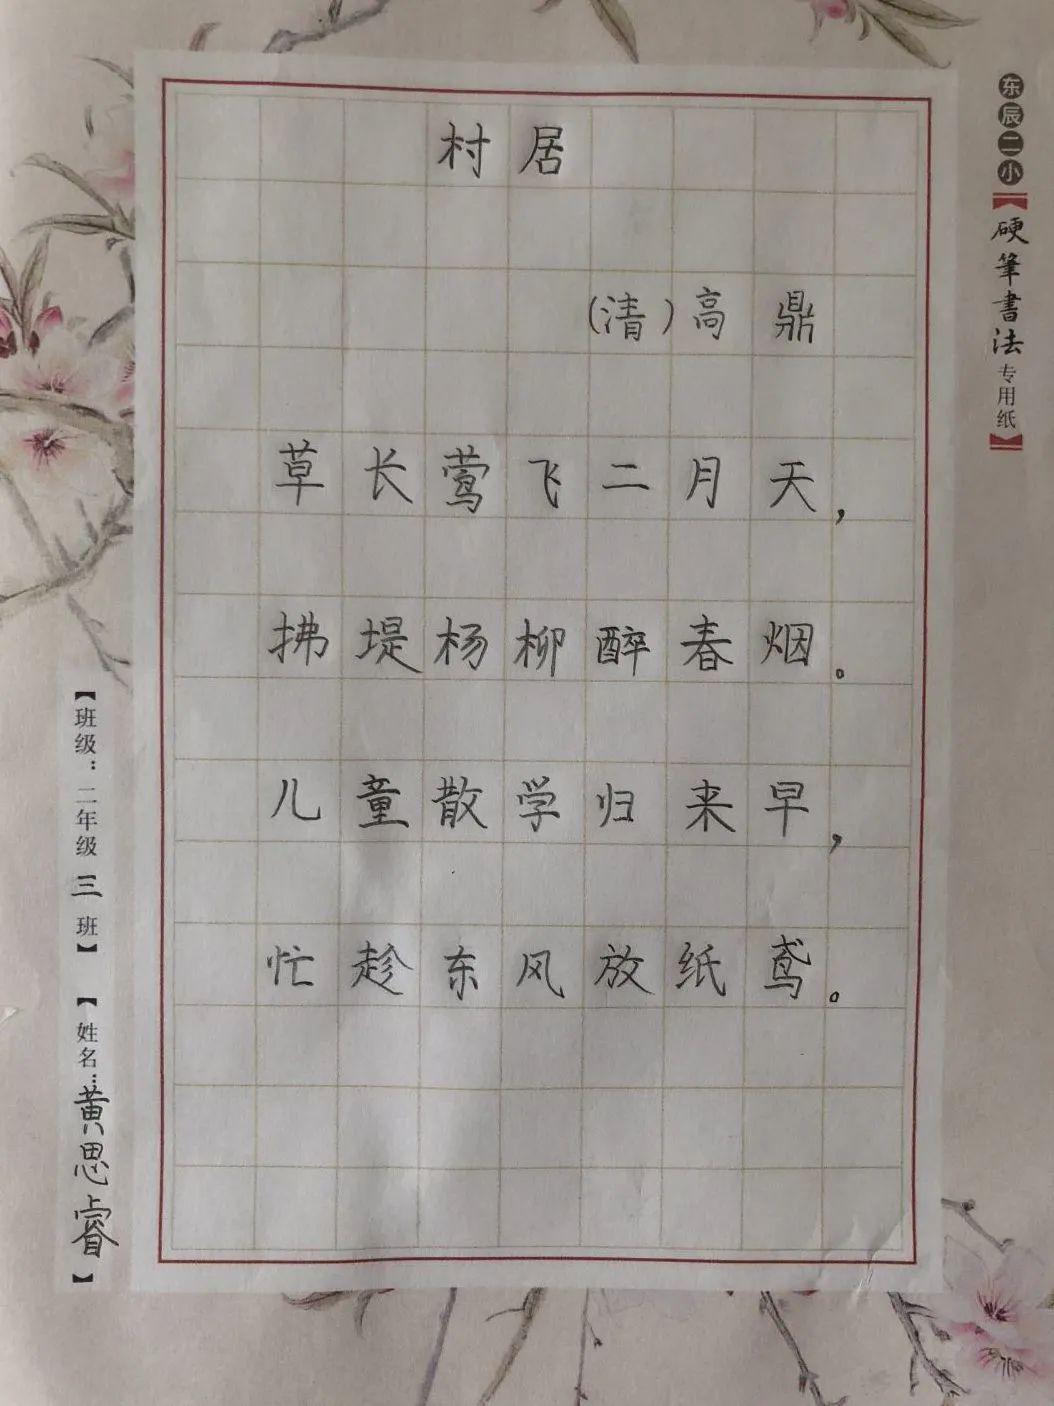 村居
(清)高鼎
草长莺飞二月天,
拂堤杨柳醉春烟。
儿童散学归来早,
忙趁东风放纸鸢。
东辰二小
【硬筆書法专用纸】
【班级：二年级三班】
【姓名：黄思睿】